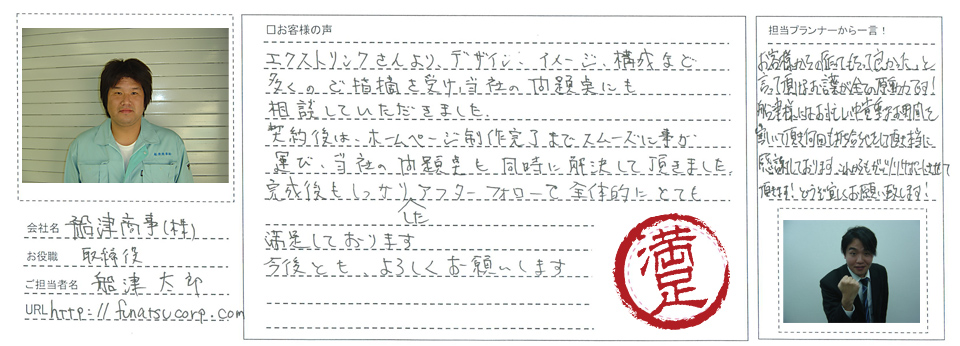 会社名 船津商事(株)
お役職 取締役
ご担当者名 船津 太郎
URL http://funatsucorp.com
□お客様の声
エクストリンクさんより、デザイン、イメージ、構成など
多くのご指摘を受け、当社の問題点にも
相談していただきました。
契約後は、ホームページ制作完了までスムーズに事が
運び、当社の問題点も同時に解決して頂きました。
完成後もしっかりしたアフターフォローで全体的にとても
満足しております
今後とも、よろしくお願いします
満足
担当プランナーから一言！
お客様からの「頼んでもらって良かった。」と
言って頂けるお言葉が全ての原動力です！
船津様にはお忙しい中貴重なお時間を
割いて頂き何回も打ち合わせをして頂き本当に
感謝しております。これからもがっつりサポートさせて
頂きます！どうぞ宜しくお願い致します！